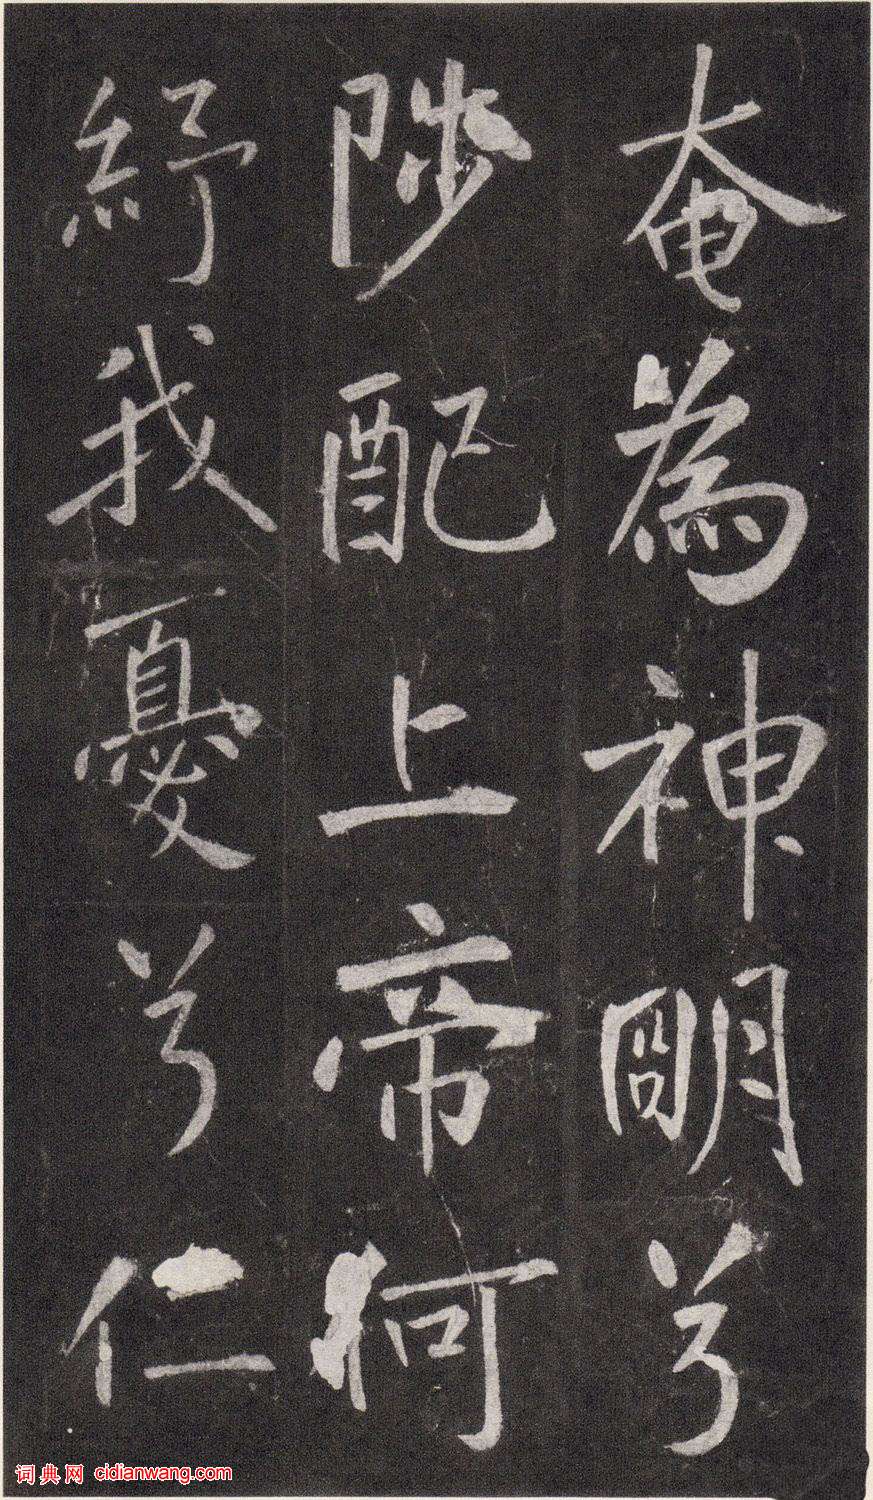 奄為神明兮
陟配上帝何
紓我憂兮仁
词典网 cidianwang.com